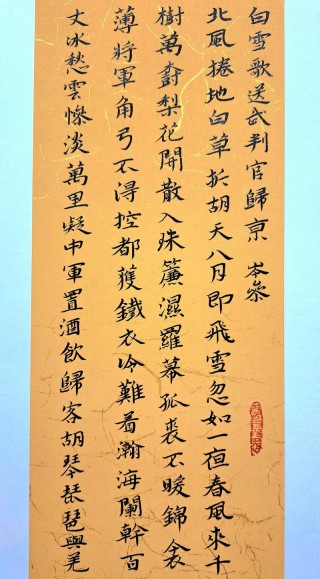 白雪歌送武判官歸京 岑參
北風捲地白草折胡天八月即飛雪忽如一夜春風來千
樹萬樹梨花開散入珠簾濕羅幕孤裘不暖錦衾
薄將軍角弓不得控都護鐵衣冷難着瀚海闌幹百
丈冰愁雲慘淡萬里凝中軍置酒飲歸客胡琴琵琶與羌